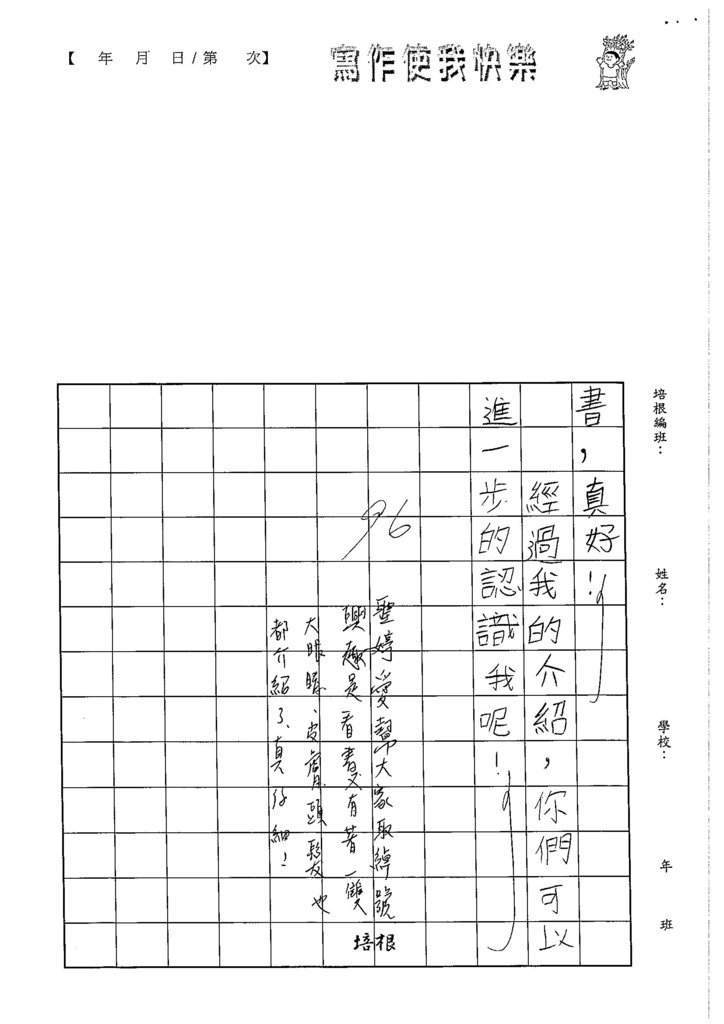 【　年　月　日/第　次】
寫作使我快樂
培根編班：
姓名：
學校：
年
班
書，真好！
經過我的介紹，你們可以
進一步的認識我呢！
96
聖婷愛幫大家取綽號
興趣是看書又有著一雙
大眼睛、皮膚頭髮也
都介紹了、真仔細！
培根